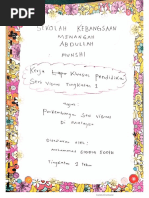 SEKOLAH KEBANGSAAN
MENENGAH
ABDULLAH
MUNSHI
Kerja Kursus Pendidikan
Seni Visual Tingkatan 1
Tajuk
Perkembangan Seni Visual
Di Malaysia
Disediakan oleh :
Muhammad
Tingkatan 1